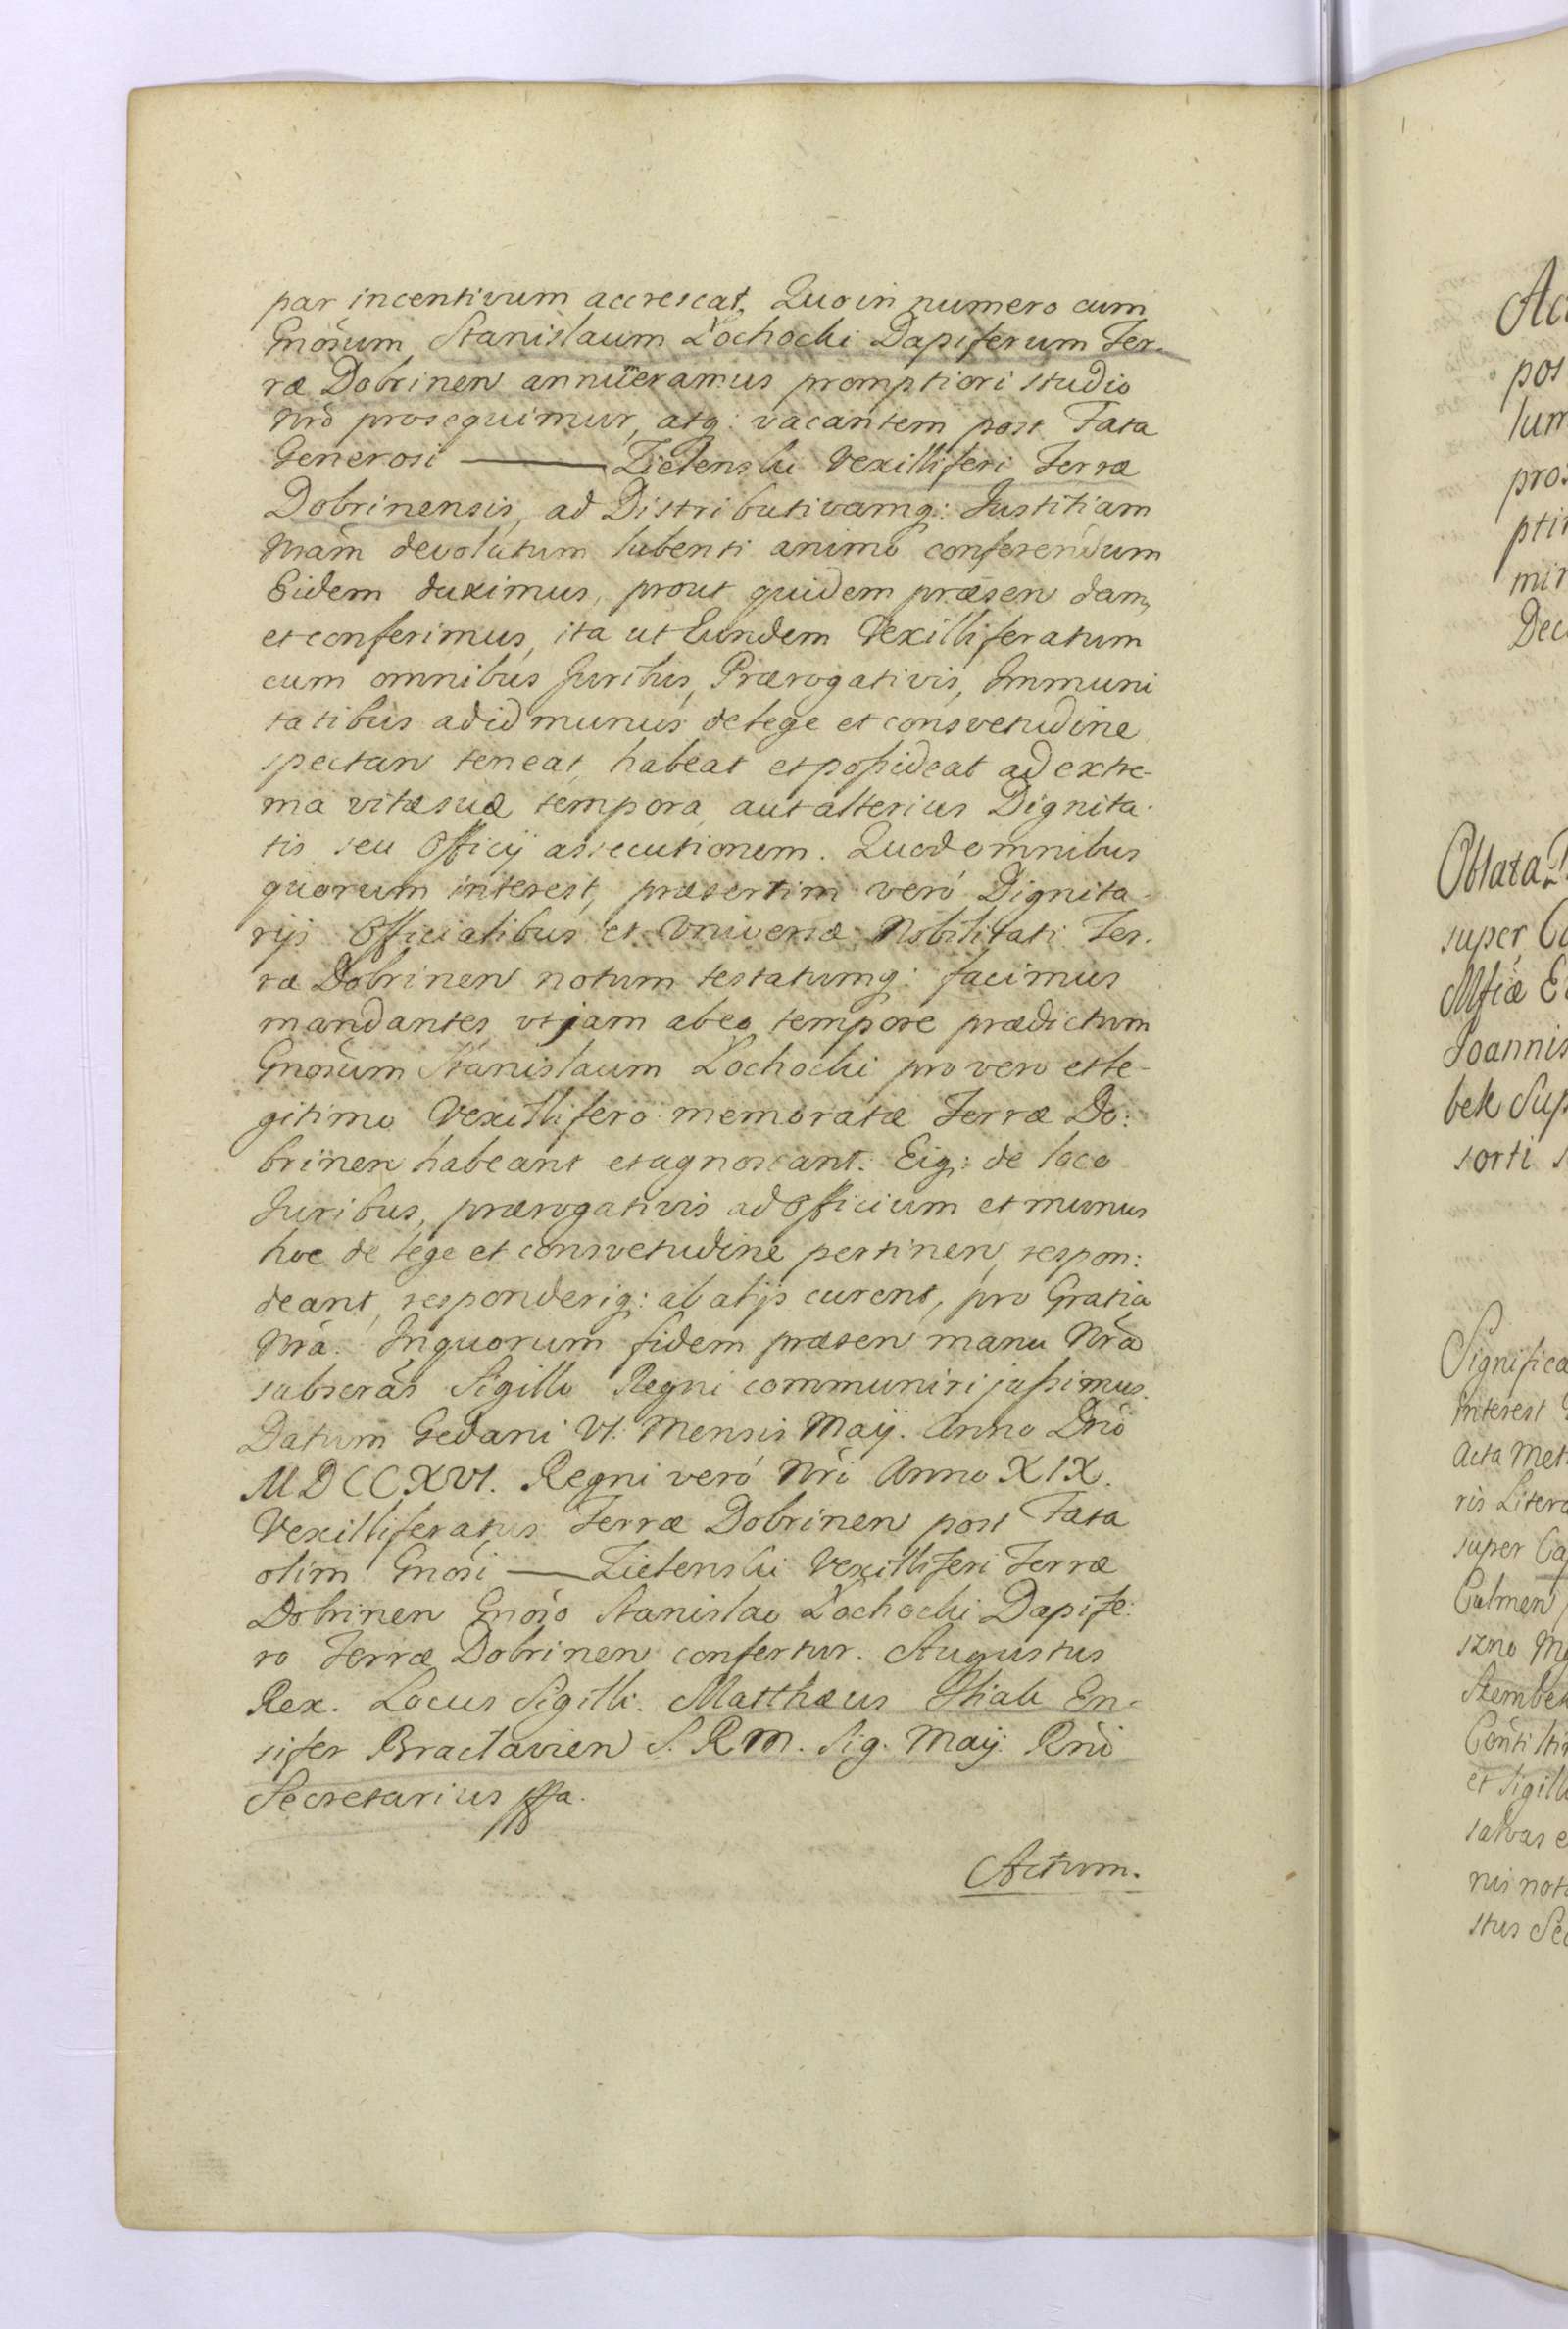 par incentivum accrescat, Quo in numero cum
Gnõsum Stanislaum Łochocki Dapiferum Ter-
ræ Dobrinen annüeramus promptiori studio
Nrõ prosequimur, atq: vacantem post Fata
Generosi ——— Zielenski Vexilliferi Terræ
Dobrinensis, ad Distributivamq: Justitiam
Nrãm devolutum lubenti animo conferendum
Eidem duximus, prout quidem præsen dam,
et conferimus, ita ut Eundem Vexilliferatum
cum omnibus Juribus, Prærogativis, Immuni
tatibus ad id munus de lege et consvetudine
spectan teneat, habeat et possideat ad extre-
ma vitæ suæ tempora aut alterius Dignita-
tis seu Officÿ assecutionem. Quod omnibus
quorum interest, præsertim veró Dignita-
rijs Officialibus et Universæ Nobilitati Ter-
ræ Dobrinen notum testatumq: facimus
mandantes ut jam ab eo tempore prædictum
Gnõsum Stanislaum Łochocki pro vero et le-
gitimo Vexillifero memoratæ Terræ Do:
brinen habeant et agnoscant. Eiq: de loco
Juribus, prærogativis ad Officium et munus
hoc de lege et consvetudine pertinen, respon:
deant, responderiq: ab alijs curent, pro Gratia
Nrã. In quorum fidem præsen manu Nrã
subscrãs Sigillo Regni communiri jussimus.
Datum Gedani VI. Mensis Maÿ. Anno Dnĩ
MDCCXVI. Regni veró Nrĩ Anno XIX.
Vexilliferatus Terræ Dobrinen post Fata
olim Gnõsi — Zielenski Vexilliferi Terræ
Dobrinen Gnõso Stanislao Łochocki Dapife:
ro Terræ Dobrinen confertur. Augustus
Rex. Locus Sigilli. Matthæus Ꝑtiak En-
sifer Bractavien S. R M. Sig. Maÿ. Rnĩ
Secretarius
Actum.
Ac
pos
lum
pro
pti
mi
Dec
Oblata
super Ca
Mtiæ E
Joannis
bek Sup
sorti s
Significa
interest
Acta Met
ris Litera
super Ca
Culmen
szno
Szembek
et Sigill
salvas e
nis not
stus Sec